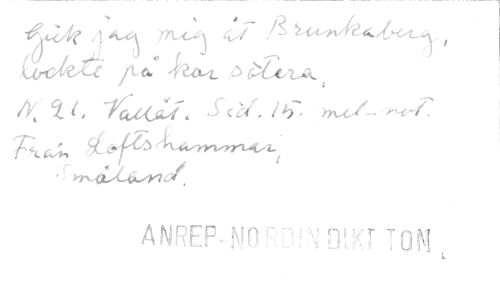 Gick jag mig åt Brunkaberg,
lockte på kor sötera,
N. 21. Vallåt. Sid. 15. mel-not.
Från Loftshammar,
Småland.
ANREP-NORDIN DIKT TON